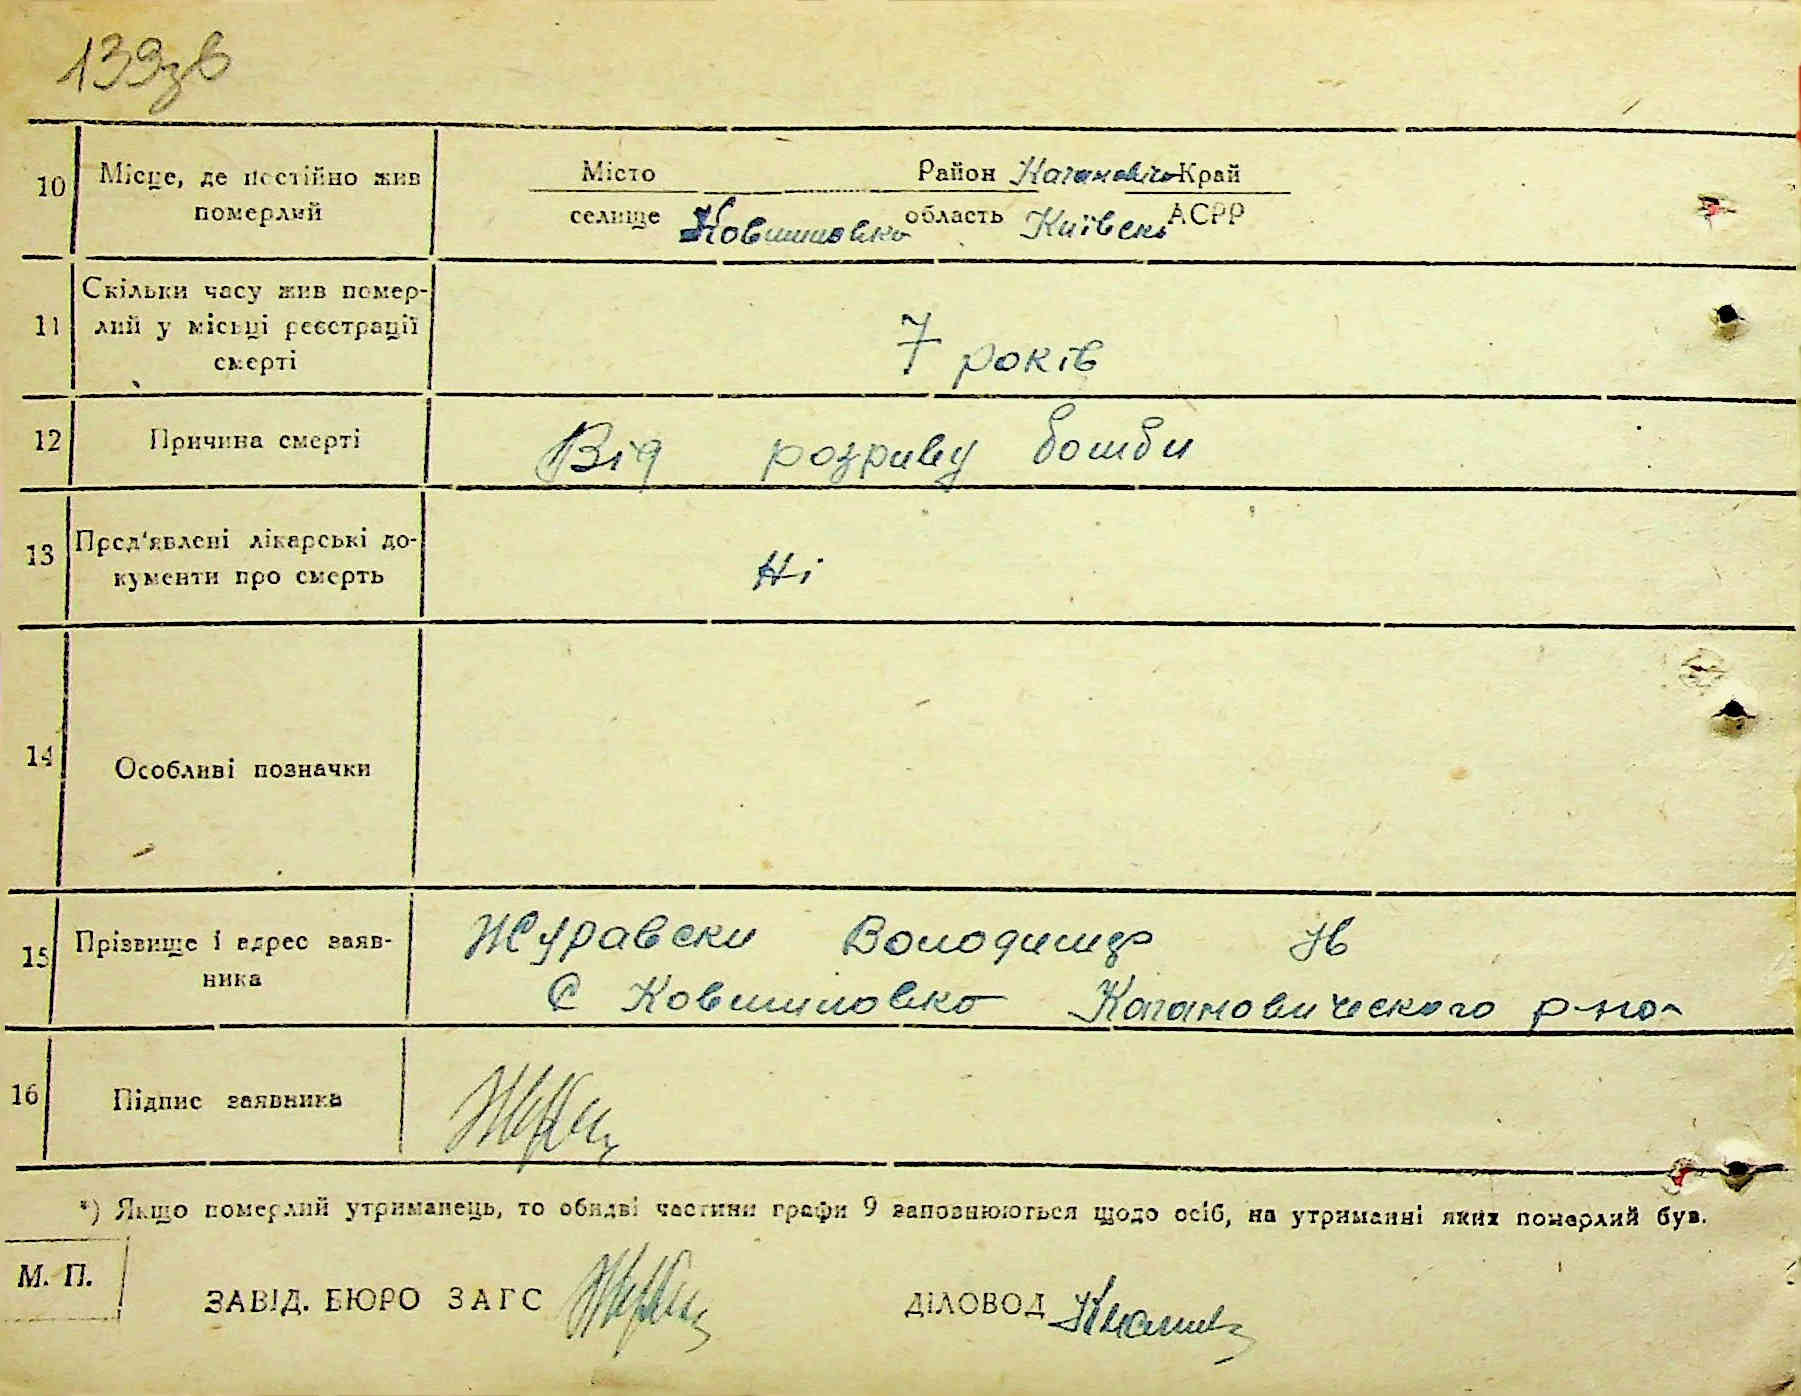 139зв
10 Місце, де постійно жив померлий
Місто Район Кагановичс Край
селище Ковшиловко область Київськ АСРР
11 Скільки часу жив помер-
лий у місці реєстрації
смерті
7 років
12 Причина смерті Від розриву бомби
13 Пред'явлені лікарські до-
кументи про смерть
Ні
14 Особливі позначки
15 Прізвище і адрес заяв-
ника
Журавски Володимир Ив
С Ковшиловко Кагановического р-но
16 Підпис заявника
*) Якщо померлий утриманець, то обидві частини графи 9 заповнюються щодо осіб, на утриманні яких померлий був.
М. П.
ЗАВІД. БЮРО ЗАГС ДІЛОВОД